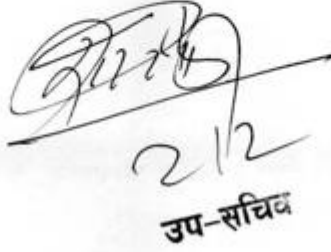 2/2
उप-सचिव